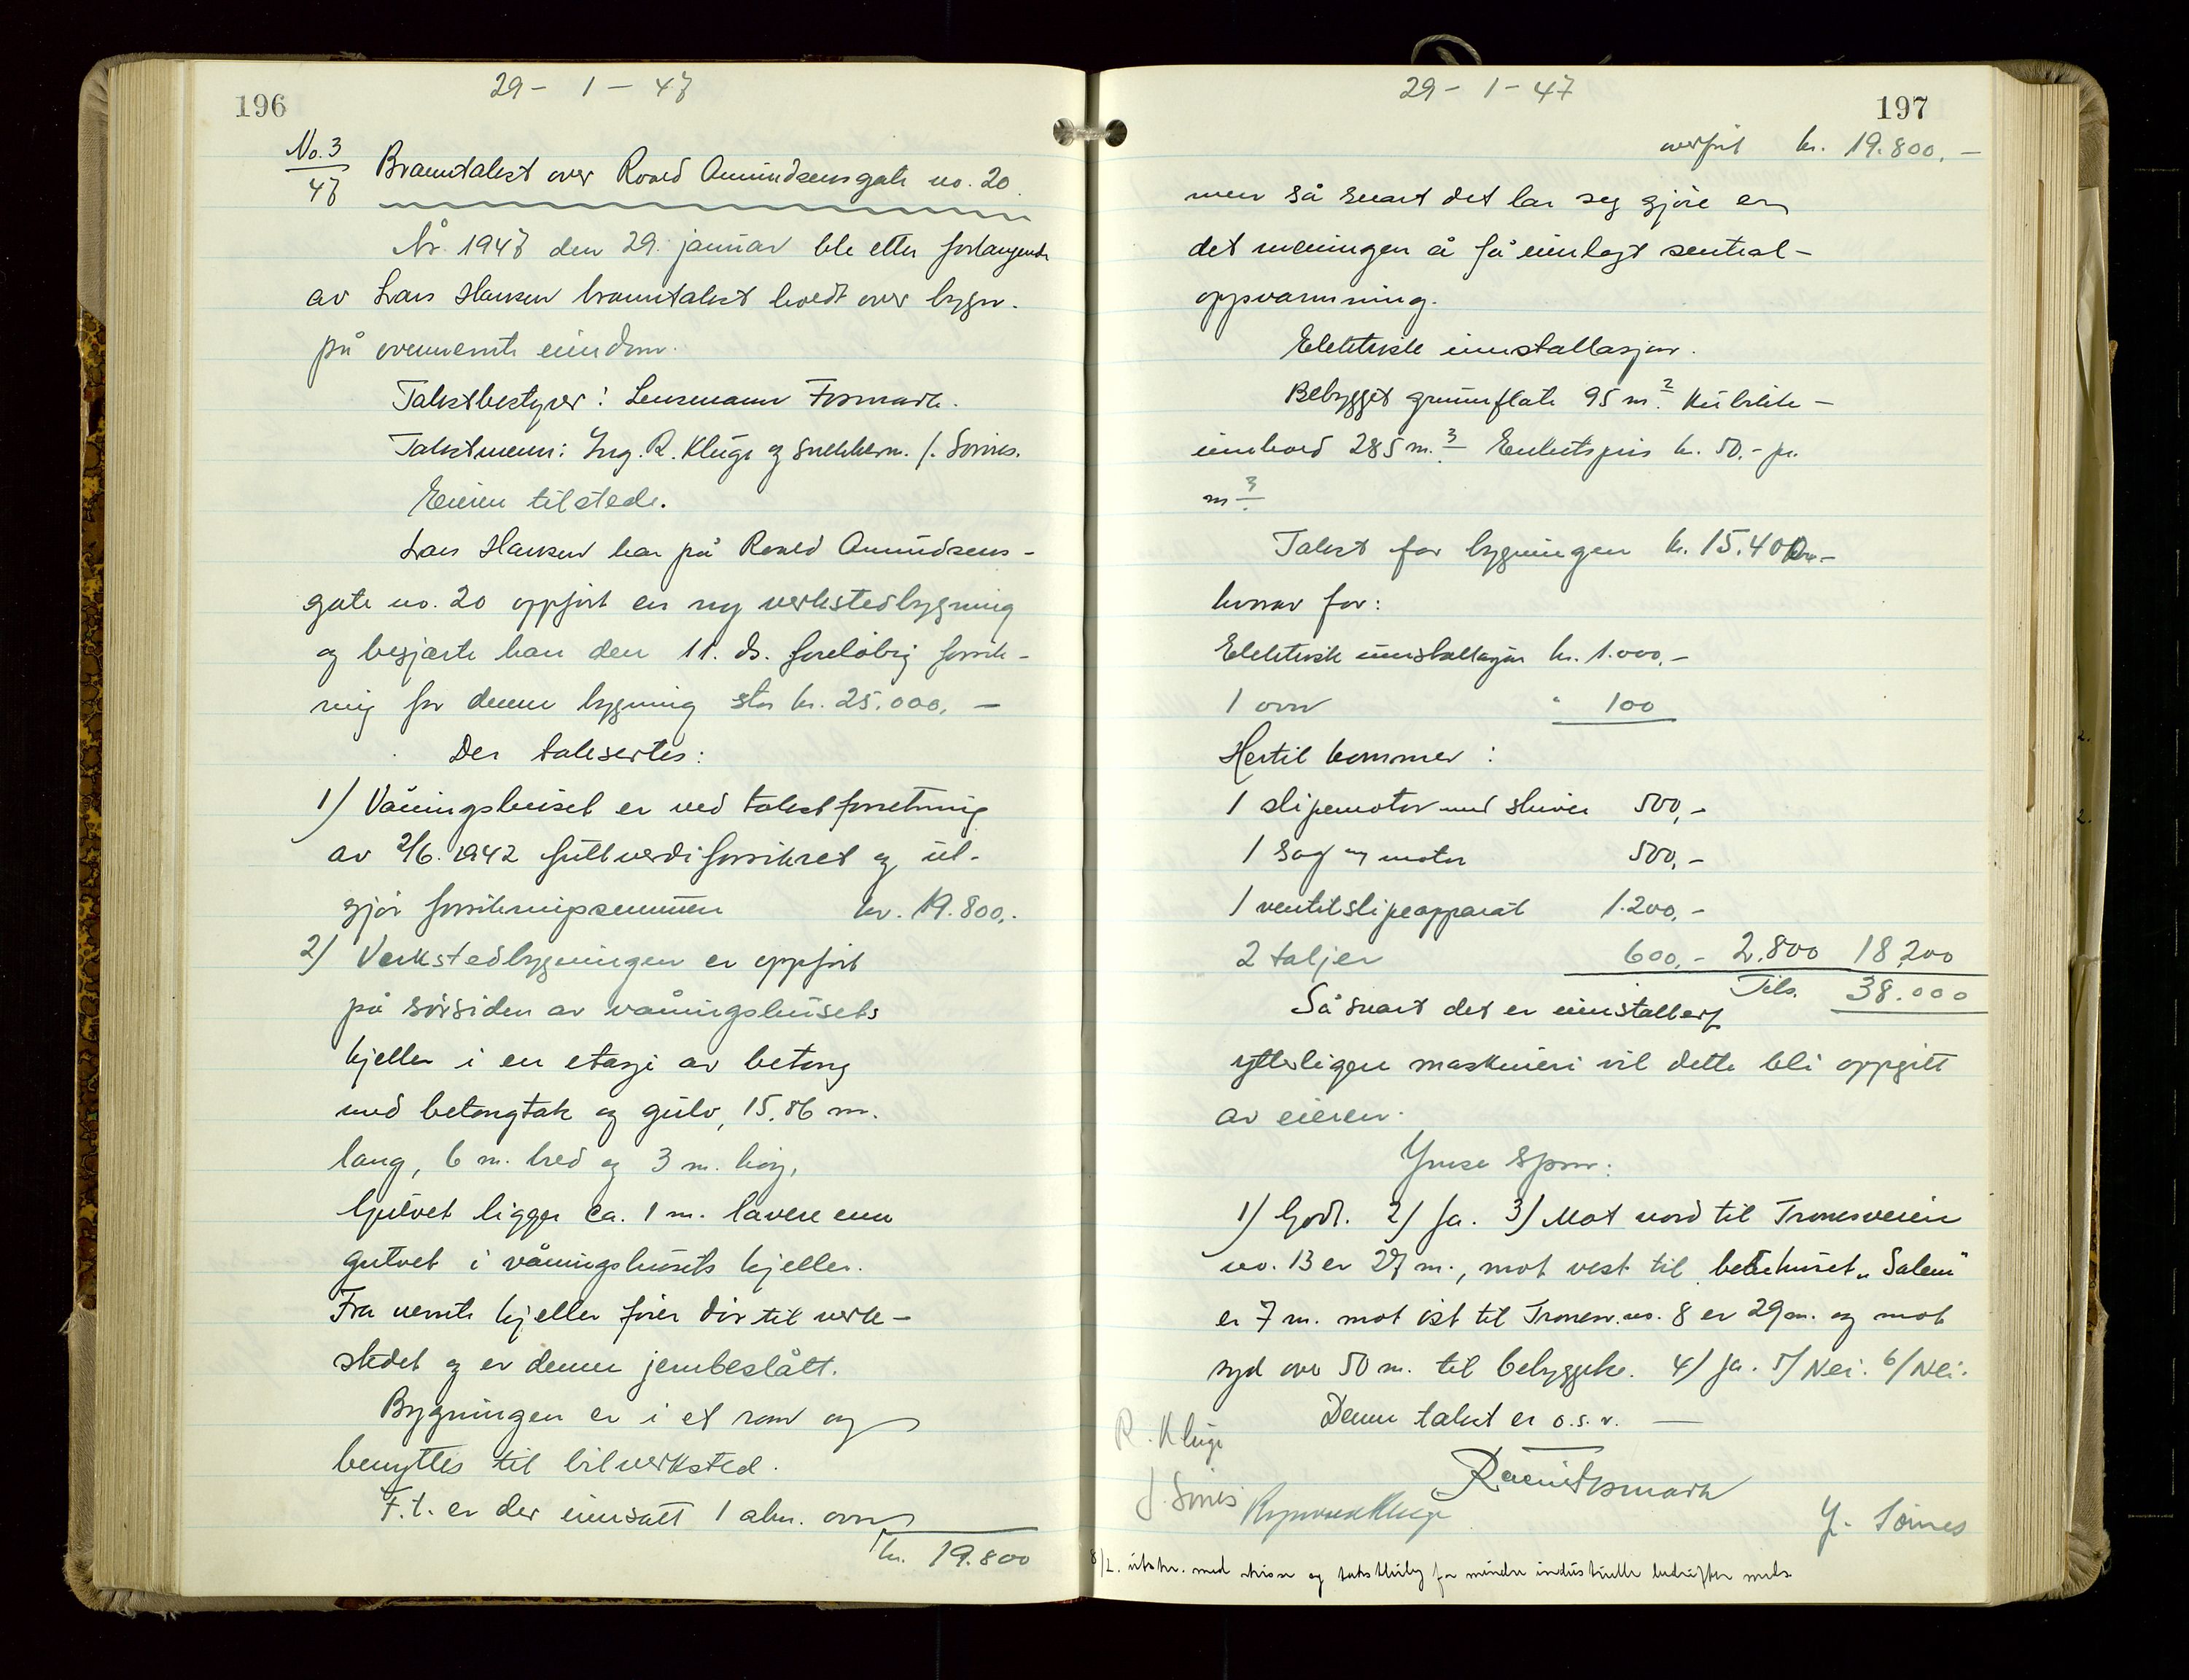 196
29 - 1 - 47
No. 3
47
Branntakst over Roald Amundsensgate no. 20.
År 1947 den 29. januar ble etter forlangende
av Lars Hansen branntakst holdt over bygn.
på ovennevnte eiendom.
Takstbestyrer: Lensmann Fosmark.
Takstmenn: Ing. R. Kluge og snekkerm. J. Sörnes.
Eieren tilstede.
Lars Hansen har på Roald Amundsens-
gate no. 20 oppfört en ny verkstedbygning
og begjærte han den 11. ds. forelöbig forsik-
ring for denne bygning stor kr. 25.000,-
Der taksertes:
1) Våningshuset er ved takstforretning
av 2/6. 1942 fullverdiforsikret og ut-
gjör forsikringssummen kr. 19.800.-
2) Verkstedbygningen er oppfört
på sörsiden av våningshusets
kjeller i en etasje av betong
med betongtak og gulv, 15.86 m.
lang, 6 m. bred og 3 m. höy,
Gulvet ligger ca. 1 m. lavere enn
gulvet i våningshusets kjeller.
Fra nevnte kjeller förer dör til verk-
stedet og er denne jernbeslått.
Bygningen er i et rom og
benyttes til bilverksted.
F.t. er der innsatt 1 alm. ovn
kr. 19.800
29 - 1 - 47
197
overfört kr. 19.800,-
men så snart det lar seg gjöre er
det meningen å få innlagt sentral-
oppvarmning.
Elektrisk innstallasjon.
Bebygget grunnflate 95 m.2 Kubikk-
innhold 285 m.3 Enhetspris kr. 50,- pr.
m3.
Takst for bygningen kr. 15.400,-
hvorav for:
Elektrisk innstallasjon kr. 1.000,-
1 ovn " 100
Hertil kommer:
1 slipemotor med skiver 500,-
1 sag m motor 500,-
1 ventilslipeapparat 1.200,-
2 taljer 600,- 2.800 18,200
Tils. 38.000
Så snart det er innstallert
ytterligere maskineri vil dette bli oppgitt
av eieren.
Ymse spm:
1) Godt. 2) Ja. 3) Mot nord til Tronesveien
no. 13 er 27 m., mot vest til bedehuset "Salem"
er 7 m. mot öst til Tronesv. no. 8 er 29 m. og mot
syd over 50 m. til bebyggelse. 4) Ja. 5) Nei. 6) Nei.
Denne takst er o.s.v. —
R. Kluge
J. Sörnes
Fosmark
Kluge
J. Sörnes
8/2. utskr. med skisse og for mindre industrielle bedrifter